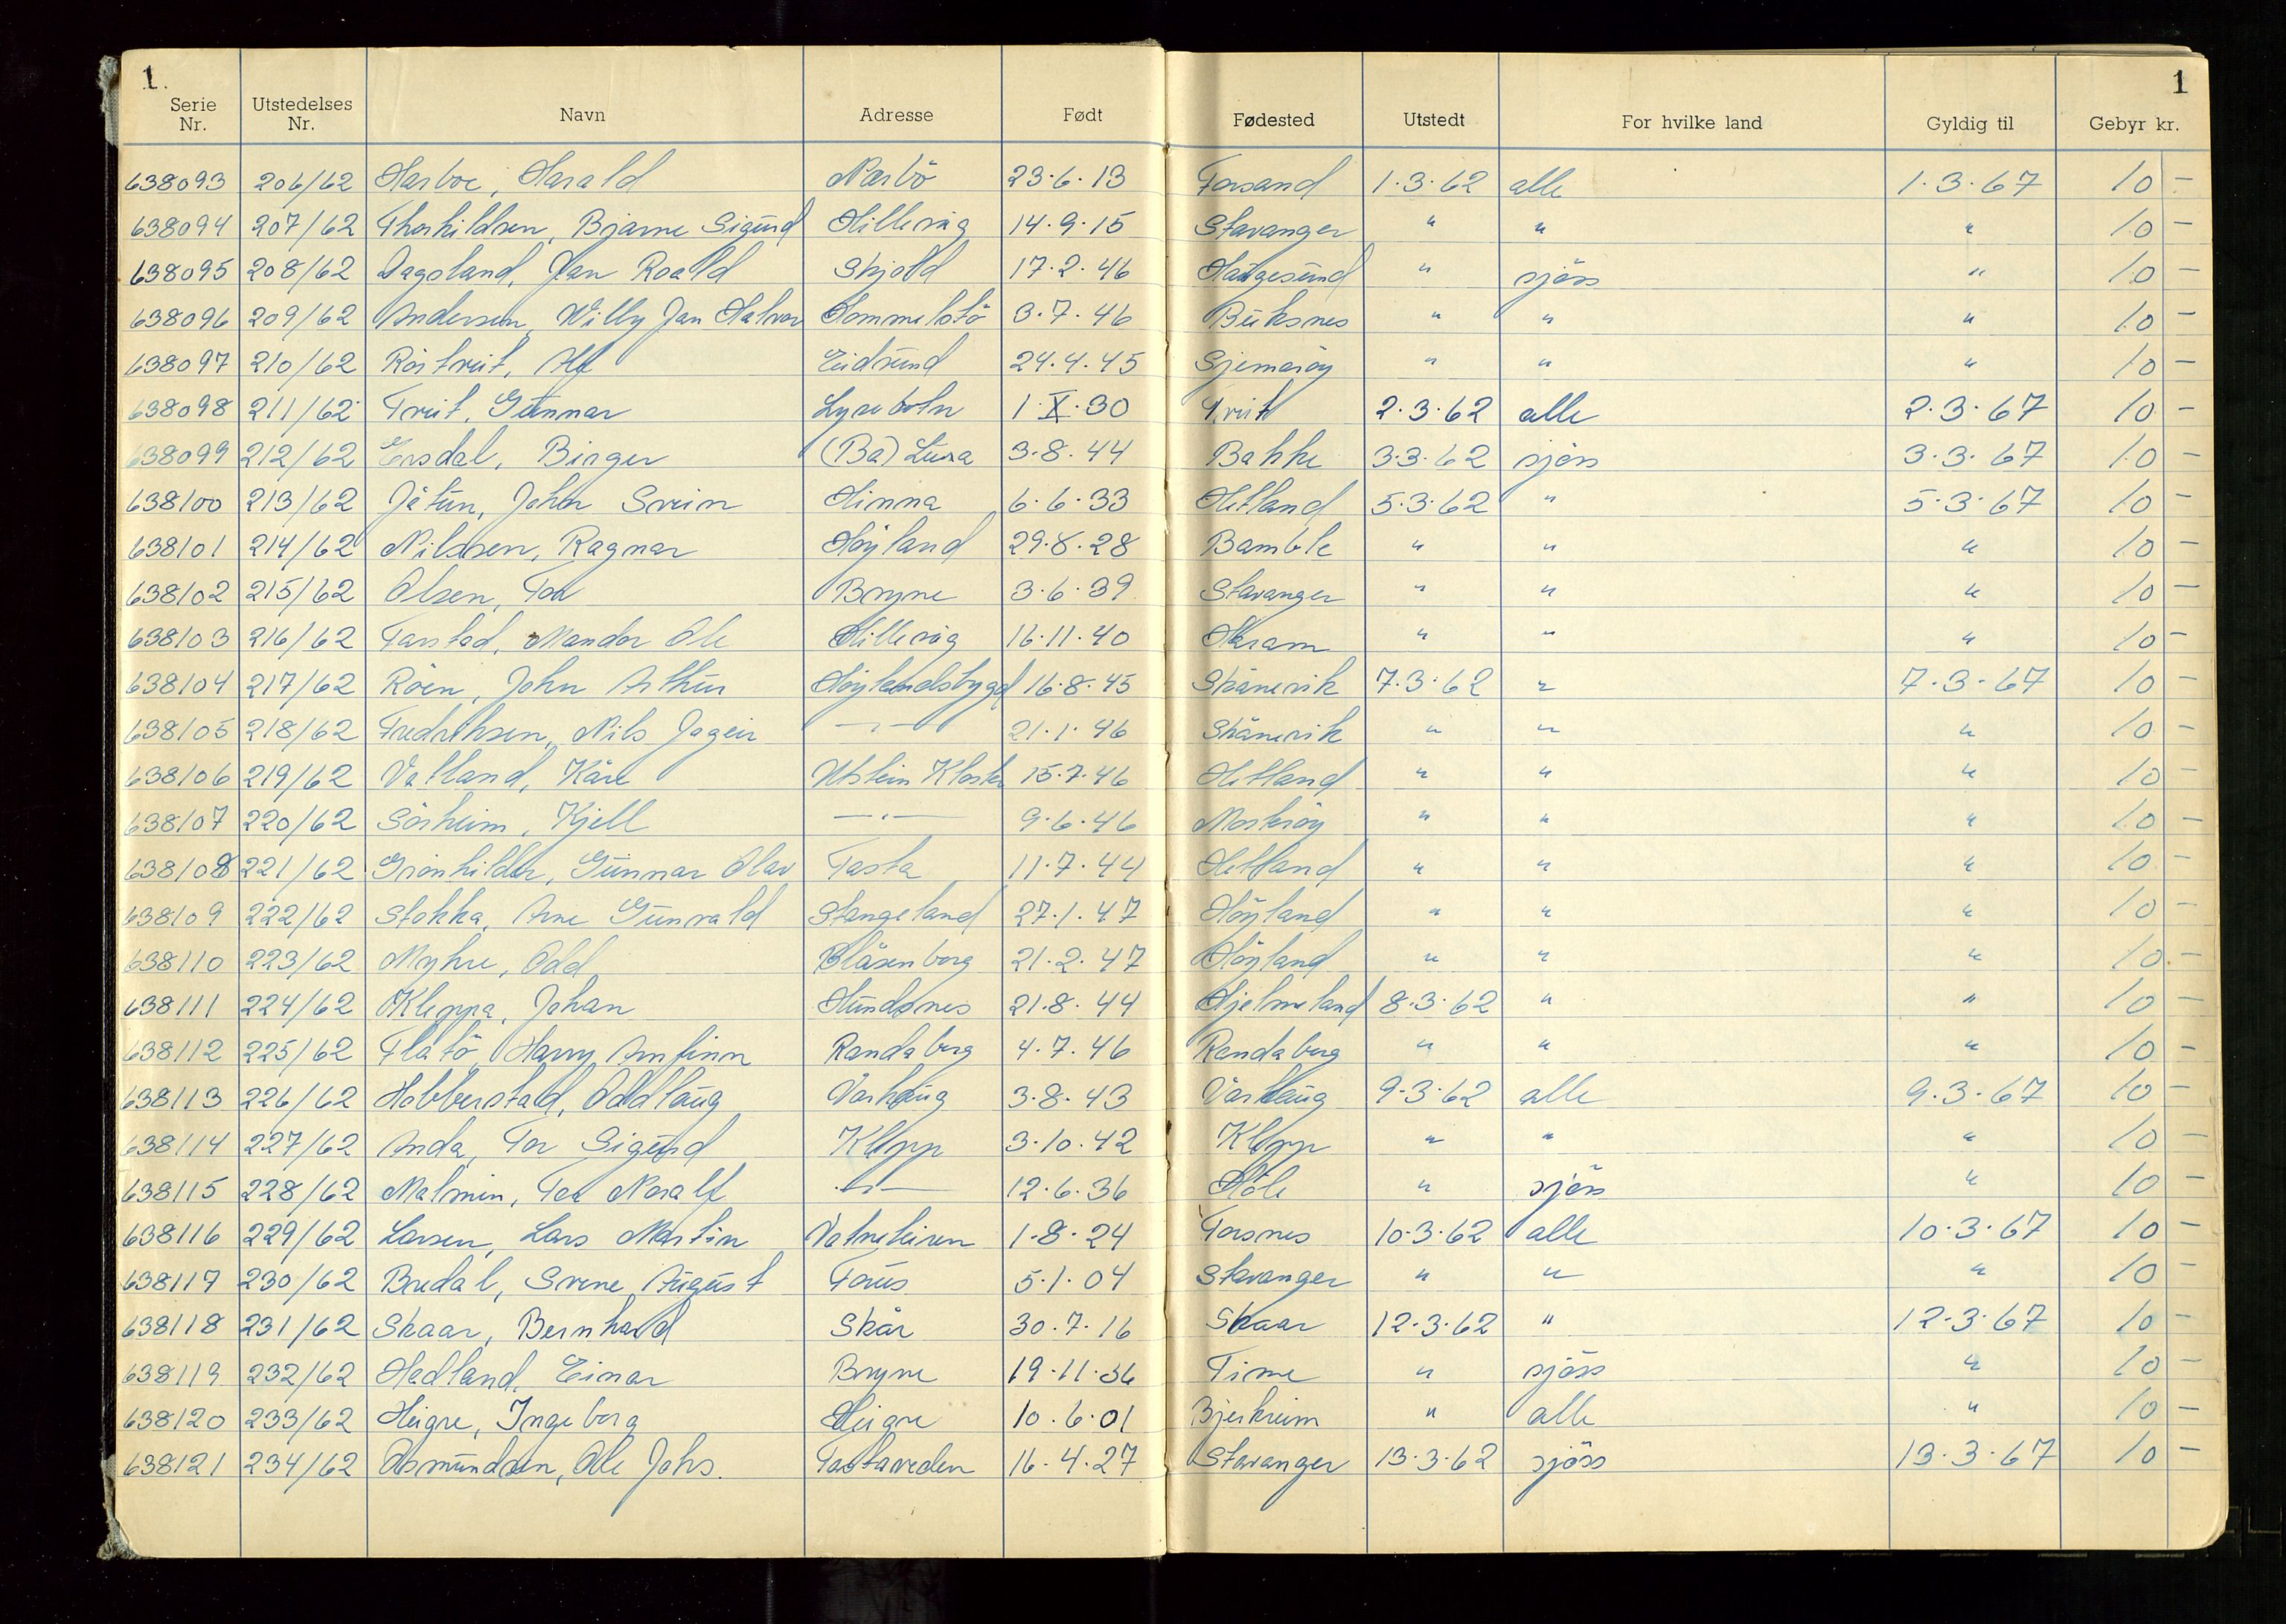 1. 1
Serie Nr. Utstedelses Nr. Navn Adresse Født Fødested Utstedt For hvilke land Gyldig til Gebyr kr.
638093 206/62 Harboe, Harald Nærbö 23.6.13 Forsand 1.3.62 alle 1.3.67 10 –
638094 207/62 Thorkildsen, Bjarne Sigurd Hillevåg 14.9.15 Stavanger " " " 10 –
638095 208/62 Dagsland, Jan Roald Skjold 17.2.46 Haugesund " sjöss " 10 –
638096 209/62 Andersen, Willy Jan Halvor Hommelstö 3.7.46 Buksnes " " " 10 –
638097 210/62 Röstveit, Alf Eidsund 24.4.45 Sjernaröy " " " 10 –
638098 211/62 Tveit, Gunnar Lysebotn 1.X.30 Tveit 2.3.62 alle 2.3.67 10 –
638099 212/62 Ersdal, Birger (Ba) Lura 3.8.44 Bakke 3.3.62 sjöss 3.3.67 10 –
638100 213/62 Jåtun, John Svein Hinna 6.6.33 Hetland 5.3.62 " 5.3.67 10 –
638101 214/62 Nilssen, Ragnar Höyland 29.8.28 Bamble " " " 10 –
638102 215/62 Olsen, Tor Bryne 3.6.39 Stavanger " " " 10 –
638103 216/62 Farstad, Mandor Ole Hillevåg 16.11.40 Haram " " " 10 –
638104 217/62 Röen, John Arthur Höylandsbygd 16.8.45 Skånevik 7.3.62 " 7.3.67 10 –
638105 218/62 Fredriksen, Nils Jageir –"– 21.1.46 Skånevik " " " 10 –
638106 219/62 Vatland, Kåre Utstein Kloster 15.7.46 Hetland " " " 10 –
638107 220/62 Sörheim, Kjell –"– 9.6.46 Mosteröy " " " 10 –
638108 221/62 Grönhilder, Gunnar Olav Tasta 11.7.44 Hetland " " " 10 –
638109 222/62 Stokka, Arne Gunvald Stangeland 27.1.47 Höyland " " " 10 –
638110 223/62 Myhre, Odd Blåsenborg 21.2.47 Höyland " " " 10 –
638111 224/62 Kleppa, Johan Hundsnes 21.8.44 Hjelmeland 8.3.62 " " 10 –
638112 225/62 Flatö, Harry Arnfinn Randaberg 4.7.46 Randaberg " " " 10 –
638113 226/62 Hobberstad, Oddlaug Varhaug 3.8.43 Varhaug 9.3.62 alle 9.3.67 10 –
638114 227/62 Anda, Tor Sigurd Klepp 3.10.42 Klepp " " " 10 –
638115 228/62 Malmin, Tor Noralf –"– 12.6.36 Höle " sjöss " 10 –
638116 229/62 Larsen, Lars Martin Vatneleiren 1.8.24 Forsnes 10.3.62 alle 10.3.67 10 –
638117 230/62 Bredal, Svene August Forus 5.1.04 Stavanger " " " 10 –
638118 231/62 Skaar, Bernhard Skår 30.7.16 Skaar 12.3.62 " 12.3.67 10 –
638119 232/62 Hadland, Einar Bryne 19.11.36 Time " sjöss " 10 –
638120 233/62 Heigre, Ingeborg Heigre 10.6.01 Bjerkreim " alle " 10 –
638121 234/62 Osmundsen, Ole Johs. Tastaveden 16.4.27 Stavanger 13.3.62 sjöss 13.3.67 10 –